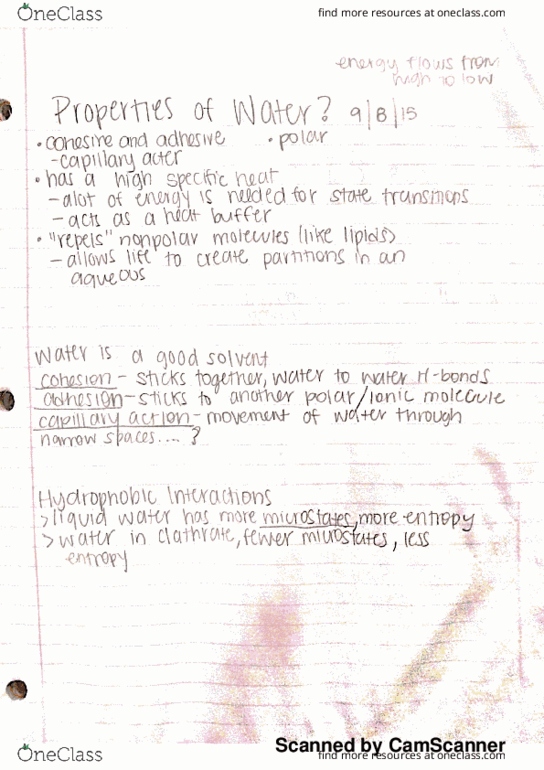 OneClass
find more resources at oneclass.com
energy flows from
high to low
Properties of Water? 9|8|15
• cohesive and adhesive • polar
- capillary acter
• has a high specific heat
- alot of energy is needed for state transitions
- acts as a heat buffer
• "repels" nonpolar molecules (like lipids)
- allows life to create partitions in an
aqueous
Water is a good solvent
cohesion - sticks together, water to water H-bonds
adhesion - sticks to another polar/ionic molecule
capillary action - movement of water through
narrow spaces.... ?
Hydrophobic Interactions
> liquid water has more microstates, more entropy
> water in clathrate, fewer microstates, less
entropy
Scanned by CamScanner
OneClass
find more resources at oneclass.com